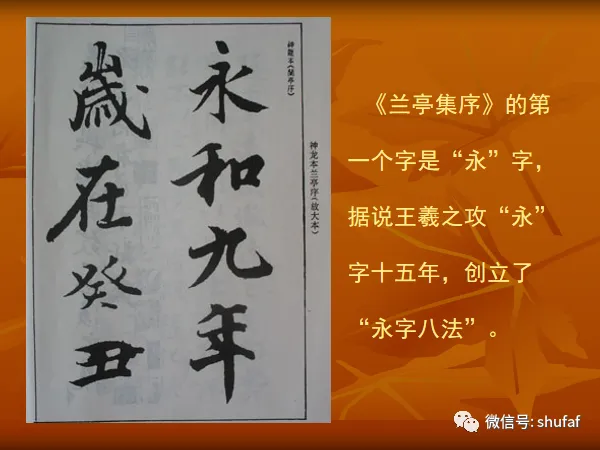 神龍本《蘭亭序》
永和九年
歲在癸丑
神龙本兰亭序(放大本)
《兰亭集序》的第
一个字是“永”字，
据说王羲之攻“永”
字十五年，创立了
“永字八法”。
微信号: shufaf